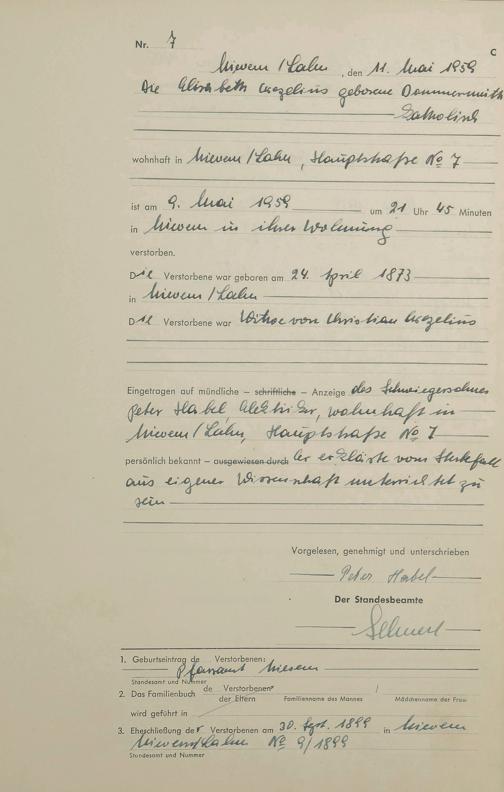 Nr. 7
C
Nievern / Lahn, den 11. Mai 1959
Die Elisabeth geborene Dommermuth
Katholisch
wohnhaft in Nievern / Lahn, Hauptstraße No 7
ist am 9. Mai 1959 um 21 Uhr 45 Minuten
in Nievern in ihrer Wohnung
verstorben.
Die Verstorbene war geboren am 24. April 1873
in Nievern / Lahn
Die Verstorbene war Witwe von Christian
Eingetragen auf mündliche – schriftliche – Anzeige des Schwiegersohnes
Peter Habel, Elektriker, wohnhaft in
Nievern / Lahn, Hauptstraße No 7
persönlich bekannt – ausgewiesen durch Er erklärte vom Sterbefall
aus eigener Wissenschaft unterrichtet zu
sein
Vorgelesen, genehmigt und unterschrieben
Peter Habel
Der Standesbeamte
1. Geburtseintrag de Verstorbenen:
Pfarramt Nievern
Standesamt und Nummer
2. Das Familienbuch de Verstorbenen /
der Eltern Familienname des Mannes Mädchenname der Frau
wird geführt in
3. Eheschließung der Verstorbenen am 30. Sept. 1899 in Nievern
Nievern/Lahn No 9/1899
Standesamt und Nummer